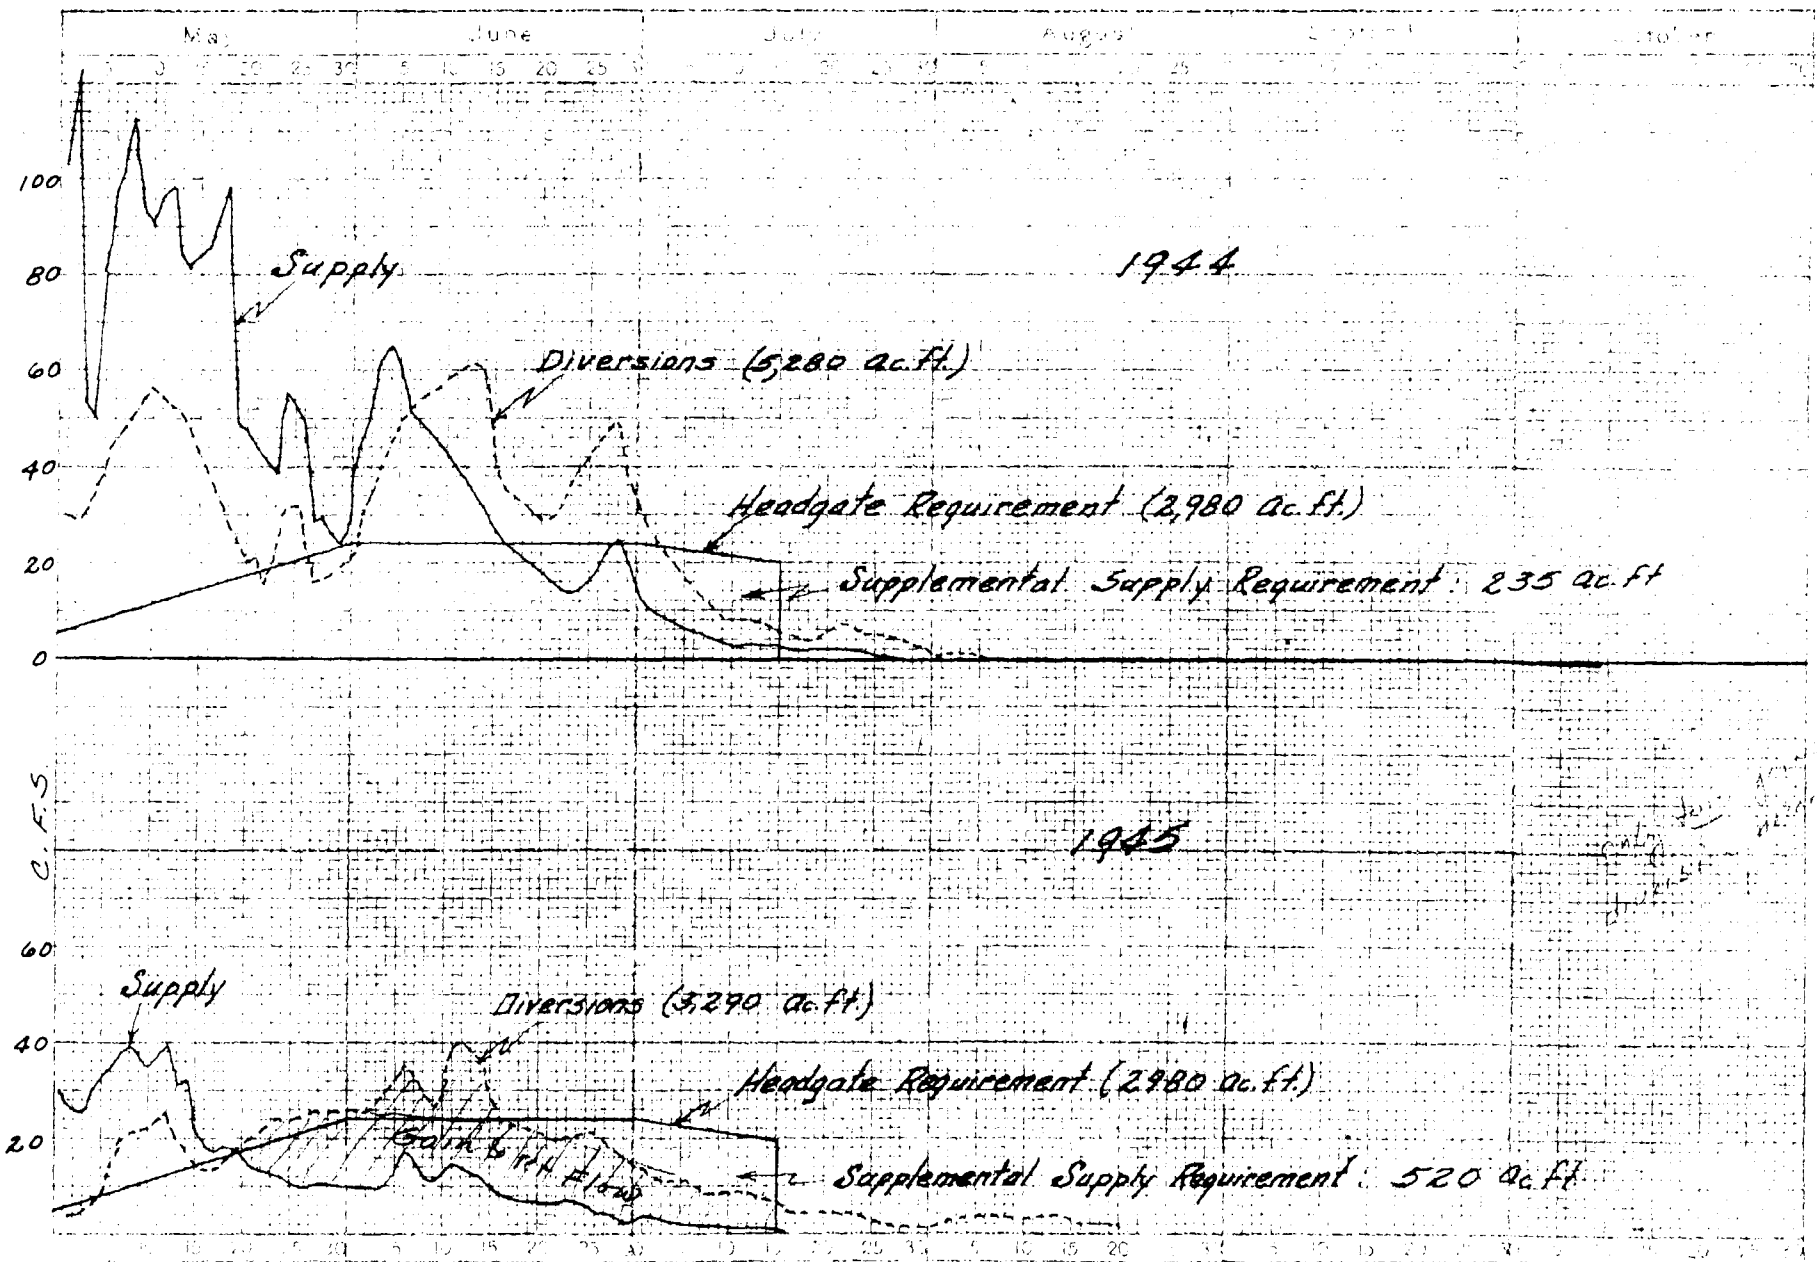 May June July August October
5 10 15 20 25 30 5 10 15 20 25 30
100
80
60
40
20
0
Supply
1944
Diversions (5,280 ac.ft.)
Headgate Requirement (2,980 ac.ft.)
Supplemental Supply Requirement: 235 ac.ft
C.F.S
1945
60
40
20
Supply
Diversions (3,290 ac.ft.)
Headgate Requirement (2980 ac.ft.)
Gain & ret Flow
Supplemental Supply Requirement: 520 ac.ft
5 10 15 20 25 30 5 10 15 20 25 30